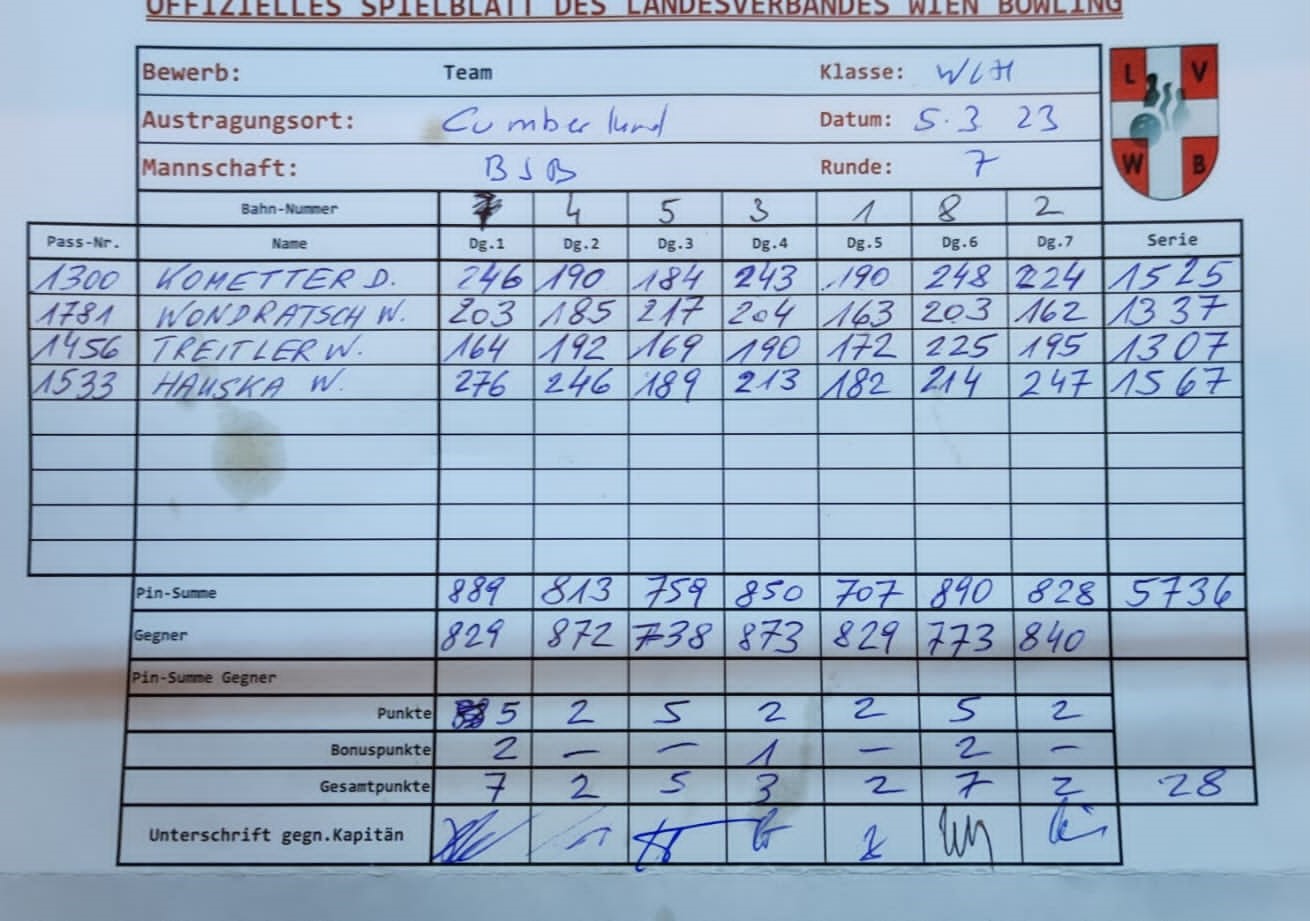 OFFIZIELLES SPIELBLATT DES LANDESVERBANDES WIEN BOWLING
Bewerb: Team Klasse: WLH
L V
W B
Austragungsort: Cumberland Datum: 5.3 23
Mannschaft: BSB Runde: 7
Bahn-Nummer 7 4 5 3 1 8 2
Pass-Nr. Name Dg.1 Dg.2 Dg.3 Dg.4 Dg.5 Dg.6 Dg.7 Serie
1300 KOMETTER D. 246 190 184 243 190 248 224 1525
1781 WONDRATSCH W. 203 185 217 204 163 203 162 1337
1456 TREITLER W. 164 192 169 190 172 225 195 1307
1533 HAUSKA W. 276 246 189 213 182 214 247 1567
Pin-Summe 889 813 759 850 707 890 828 5736
Gegner 829 872 738 873 829 773 840
Pin-Summe Gegner
Punkte 5 2 5 2 2 5 2
Bonuspunkte 2 — — 1 — 2 —
Gesamtpunkte 7 2 5 3 2 7 2 28
Unterschrift gegn.Kapitän